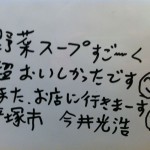 野菜スープすご〜く
超おいしかったです
また、お店に行きまーす
平塚市 今井光浩